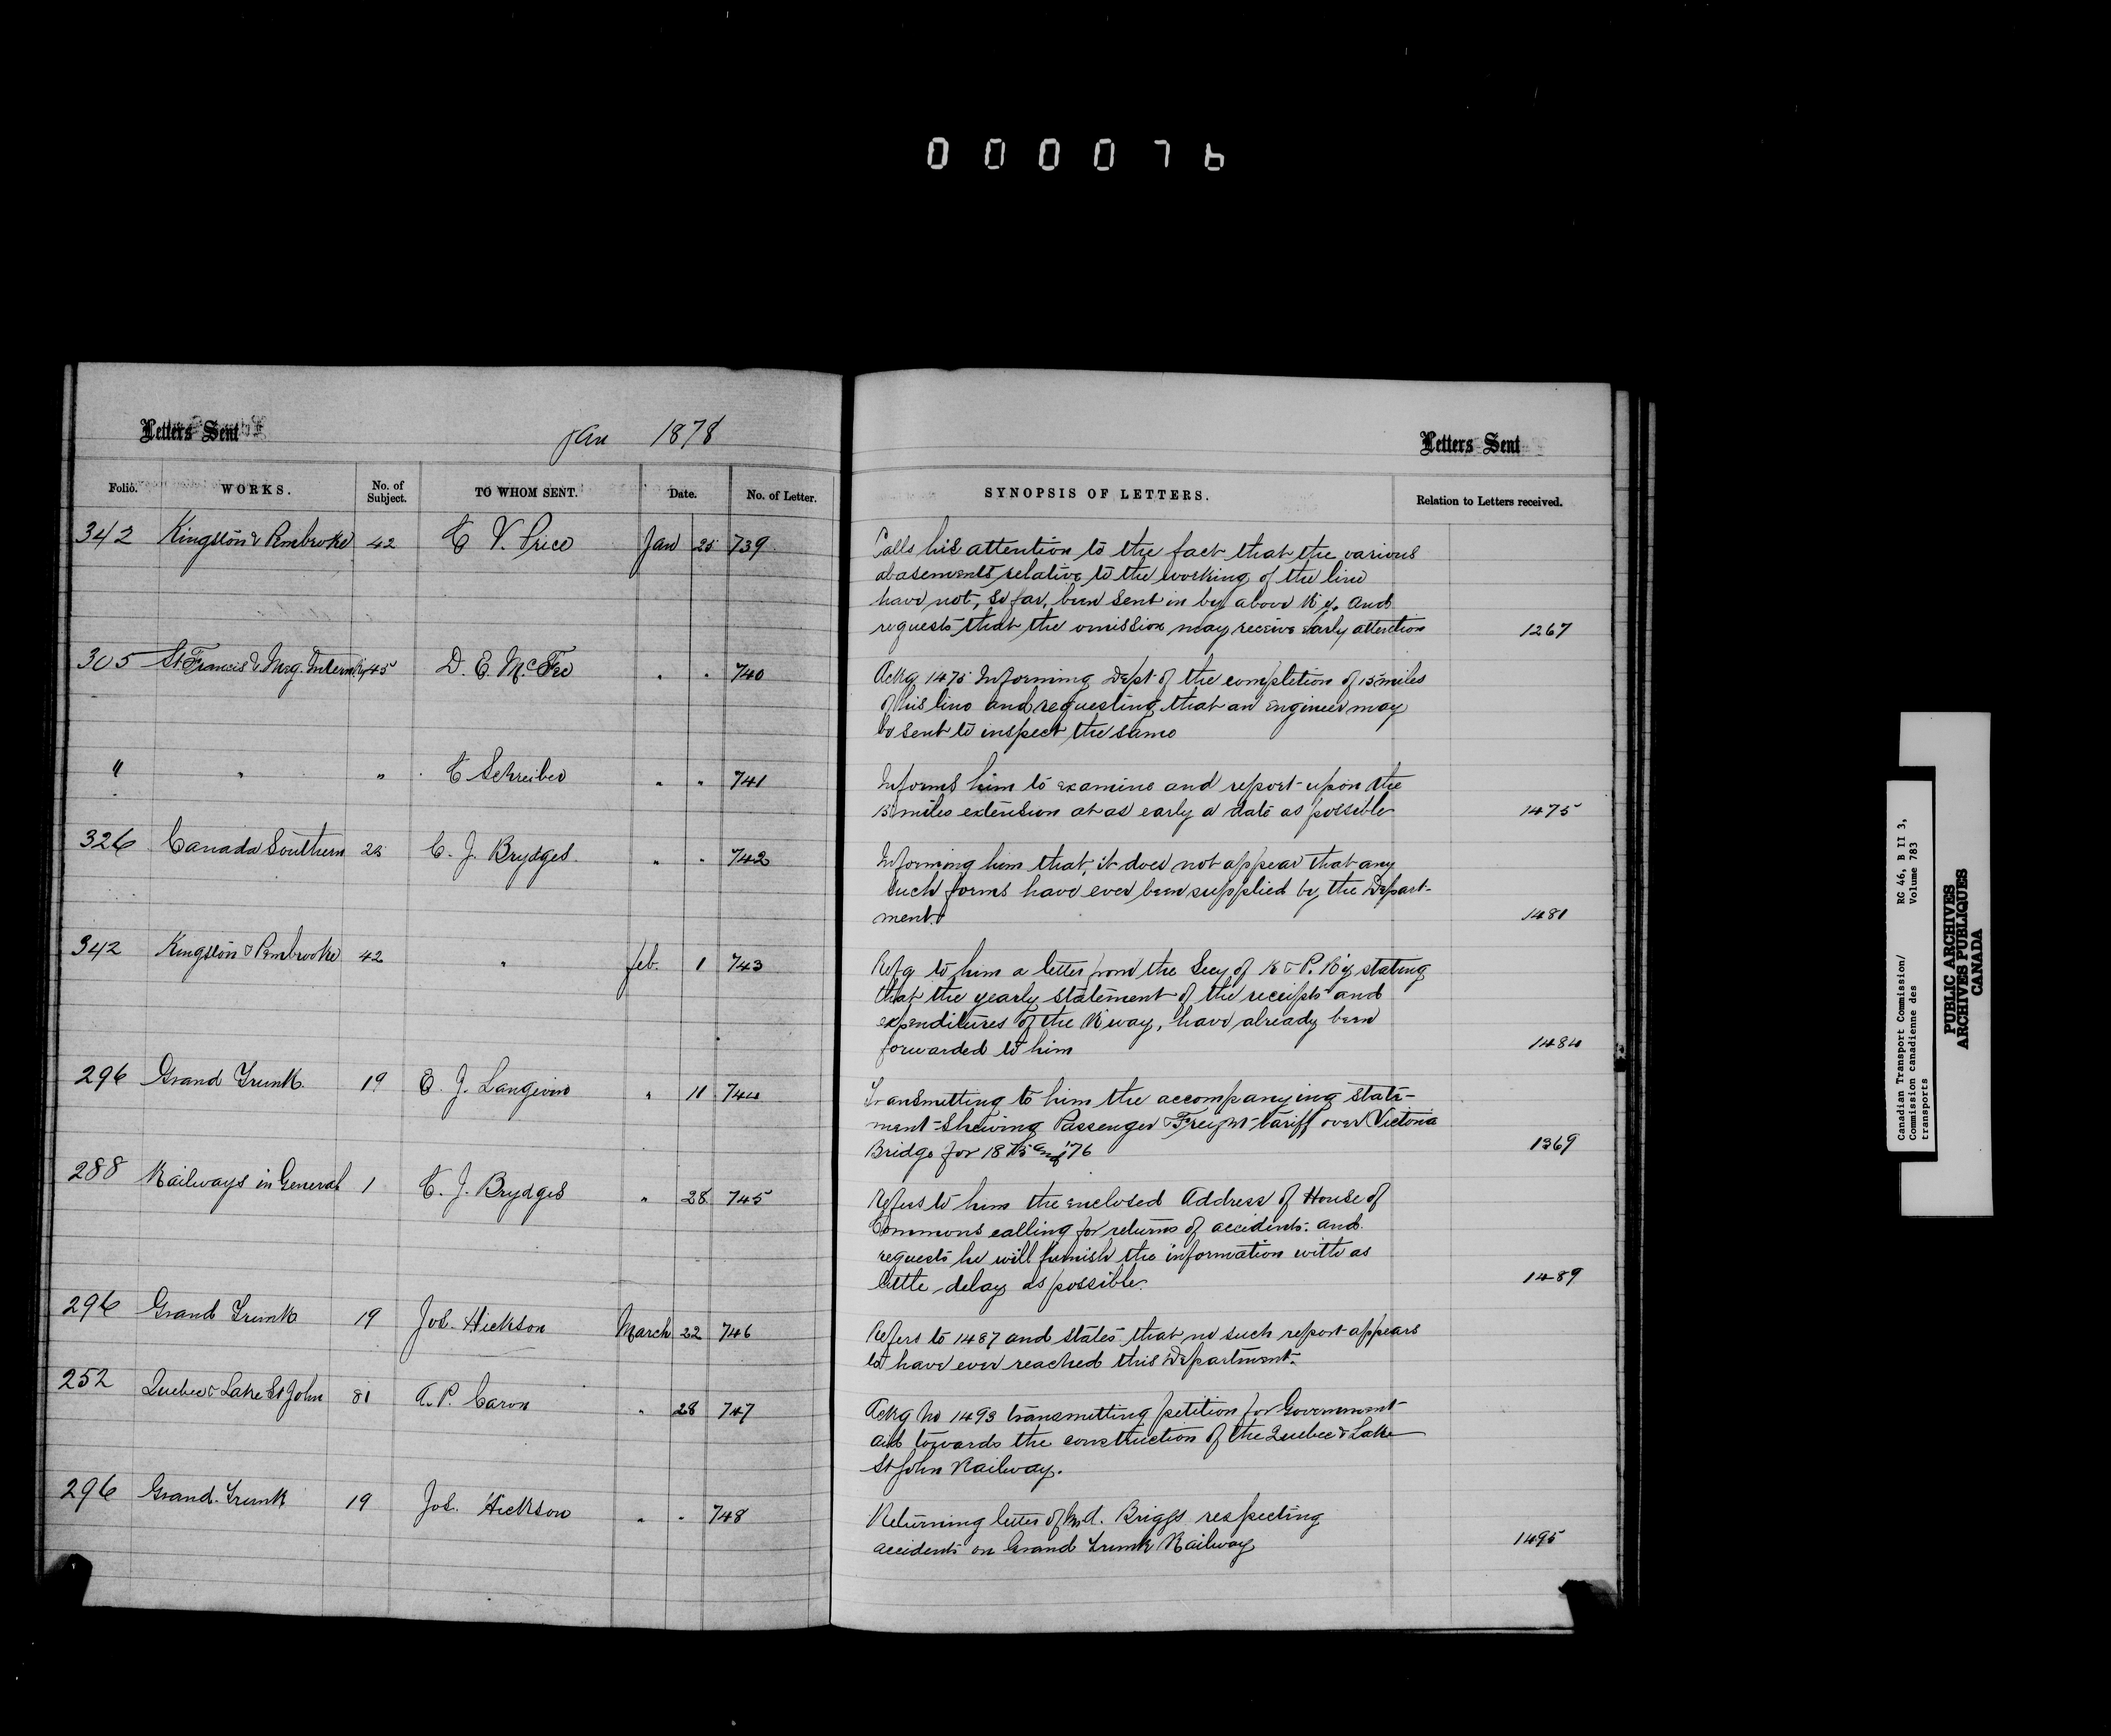 000076
Letters Sent
Jan 1878
Letters Sent
Folio. WORKS. No. of Subject. TO WHOM SENT. Date. No. of Letter. SYNOPSIS OF LETTERS. Relation to Letters received.
342 Kingston & Pembroke 42 C V. Price Jan 25 739 Calls his attention to the fact that the various
relative to the working of the line
have not, so far, been sent in by above R'y. and
requests that the omission may receive early attention 1267
305 St Francis & Meg. Intern Ry 45 D. E. McFee " " 740 Ackg 1475 Informing Dept of the completion of 15 miles
of his line and requesting that an Engineer may
be sent to inspect the same
" " " C Schreiber " " 741 Informs him to examine and report upon the
15 miles extension at as early a date as possible 1475
326 Canada Southern 25 C. J. Brydges " " 742 Informing him that, it does not appear that any
such forms have ever been supplied by the Depart-
ment. 1481
342 Kingston & Pembroke 42 " feb. 1 743 Refg to him a letter from the Secy of K & P. R'y stating
that the yearly statement of the receipts and
expenditures of the R'way, have already been
forwarded to him 1484
296 Grand Trunk 19 E. J. Langevin " 11 744 Transmitting to him the accompanying state-
ment shewing Passenger & Freight tariff over Victoria
Bridge for 1875 and '76 1369
288 Railways in General 1 C. J. Brydges " 28 745 Refers to him the enclosed Address of House of
Commons calling for returns of accidents. and
requests he will furnish the information with as
little delay as possible. 1489
296 Grand Trunk 19 Jos. Hickson March 22 746 Refers to 1487 and states that no such report appears
to have ever reached this Department.
252 Quebec & Lake St John 81 A. P. Caron " 28 747 Ackg No 1493 transmitting petition for Government
aid towards the construction of the Quebec & Lake
St John Railway.
296 Grand Trunk 19 Jos. Hickson " " 748 Returning letter of Briggs respecting
accidents on Grand Trunk Railway 1495
Canadian Transport Commission/ RG 46, B II 3,
Commission canadienne des Volume 783
transports
PUBLIC ARCHIVES
ARCHIVES PUBLIQUES
CANADA